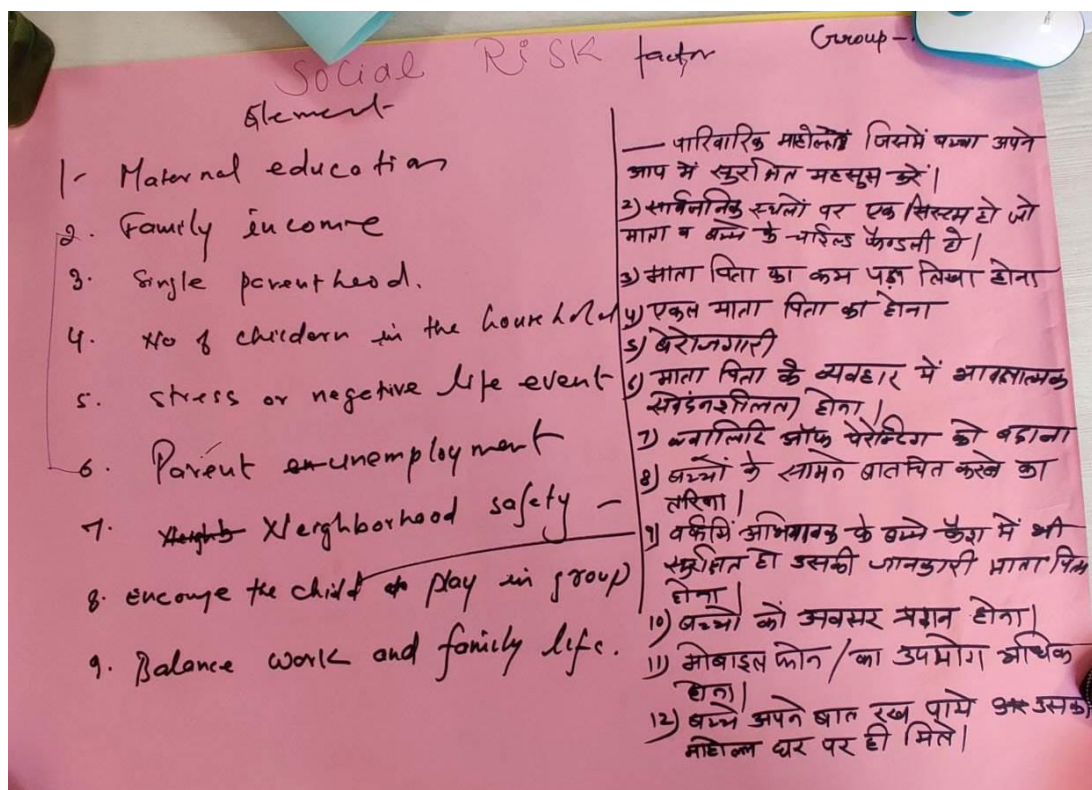 Social RISK factor
Group -
Element
1- Maternal education
2. Family income
3. Single parenthood.
4. No of childern in the household
5. stress or negetive life event
6. Parent unemployment
7. Neighborhood safety -
8. encourge the child play in group
9. Balance work and family life.
— पारिवारिक जिसमें बच्चा अपने
आप में सुरक्षित महसूस करें।
2) सार्वजनिक स्थलों पर एक सिस्टम हो जो
माता व बच्चे के चाईल्ड फैन्डली हो।
3) माता पिता का कम पढ़ा लिखा होना
4) एकल माता पिता का होना
5) बेरोजगारी
6) माता पिता के व्यवहार में भावनात्मक
होना।
7) क्वालिटि ऑफ पेरेन्टिग को बढ़ाना
8) बच्चों के सामने बातचित करने का
तरिका।
9) अभिभावक के बच्चे में भी
सुरक्षित हो उसकी जानकारी माता पिता
होना।
10) बच्चो को अवसर प्रदान होना।
11) मोबाइल फोन / का उपयोग अधिक
होना।
12) बच्चे अपने बात रख पाये उसका
माहोल घर पर ही मिले।